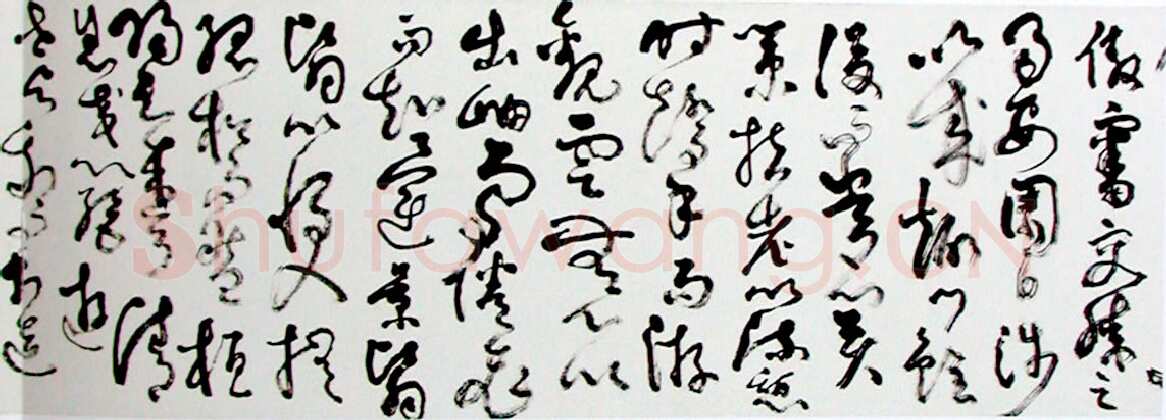 傲審容膝之
易安園日涉
以成趣門雖
設而常關
策扶老以流憩
時矯首而游
觀雲無心以
出岫鳥倦飛
而知還景翳
翳以將入撫
孤松而盤桓
歸去來兮請
息交以絕遊
世與我而相遺
Shufawang.CN